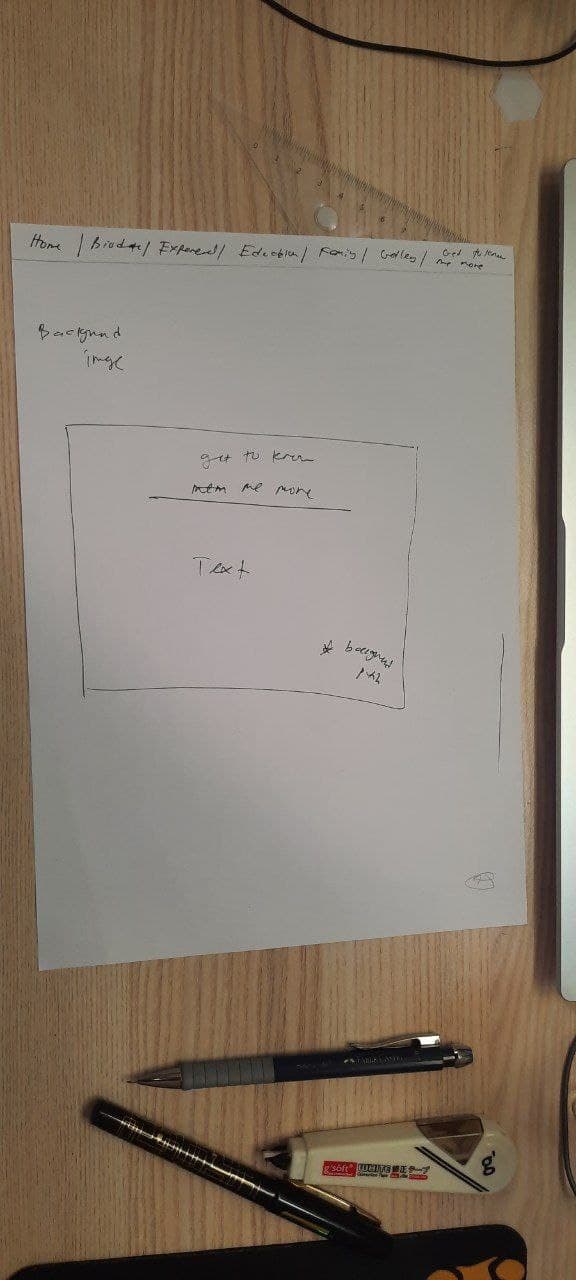 Home / Biodata / Experience / Education / Family / Gallery / Get to know
me more
Background
image
get to know
me more
Text
* background
0 1 2 3 4 5 6 7
g'soft
WHITE
g'